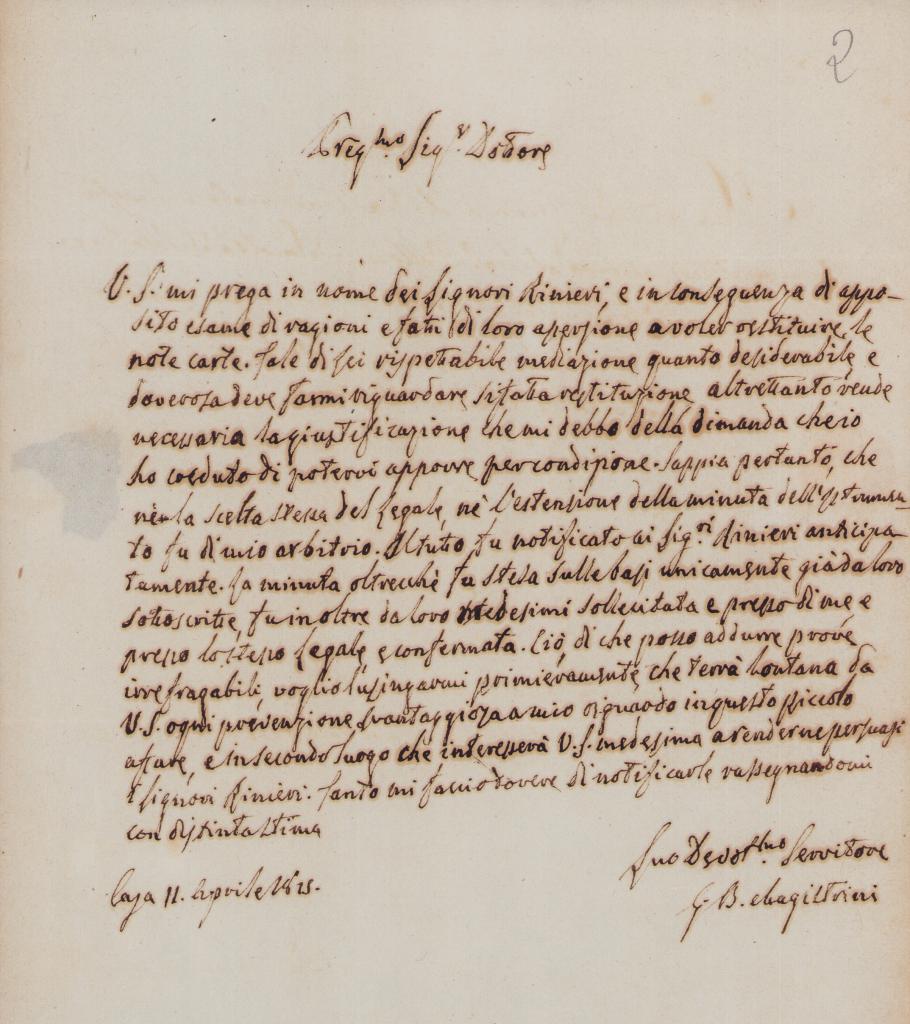 2
Preg.mo Sig.r Dottore
V. S. mi prega in nome dei Signori Rinieri, e in conseguenza di appo-
sito esame di ragioni e fatti di loro aspersione a voler restituire le
note carte. Tale di Lei rispettabile mediazione quanto desiderabile e
doverosa deve farmi riguardare sifatta restituzione altrettanto rende
necessaria la giustificazione che mi debbo della dimanda che io
ho creduto di potervi apporre per condizione. Sappia pertanto, che
nè la scelta stessa del Legale, nè l'estensione della minuta dell'Istrumen-
to fu di mio arbitrio. Il tutto fu notificato ai Sig.ri Rinieri anticipa-
tamente. La minuta oltrecchè fu stesa sulle basi unicamente già da loro
sottoscritte, fu inoltre da loro medesimi sollecitata e presso di me e
presso lo stesso Legale e confermata. Ciò, di che posso addurre prove
irrefragabili, voglio lusingarmi primieramente, che terrà lontana da
V. S. ogni prevenzione svantaggiosa a mio riguardo in questo piccolo
affare, e in secondo luogo che interesserà V. S. medesima a renderne persuasi
i Signori Rinieri. Tanto mi faccio dovere di notificarle rassegnandomi
con distinta stima
Suo Devot.mo Servitore
Casa 11. Aprile 1825.
G. B. Magistrini